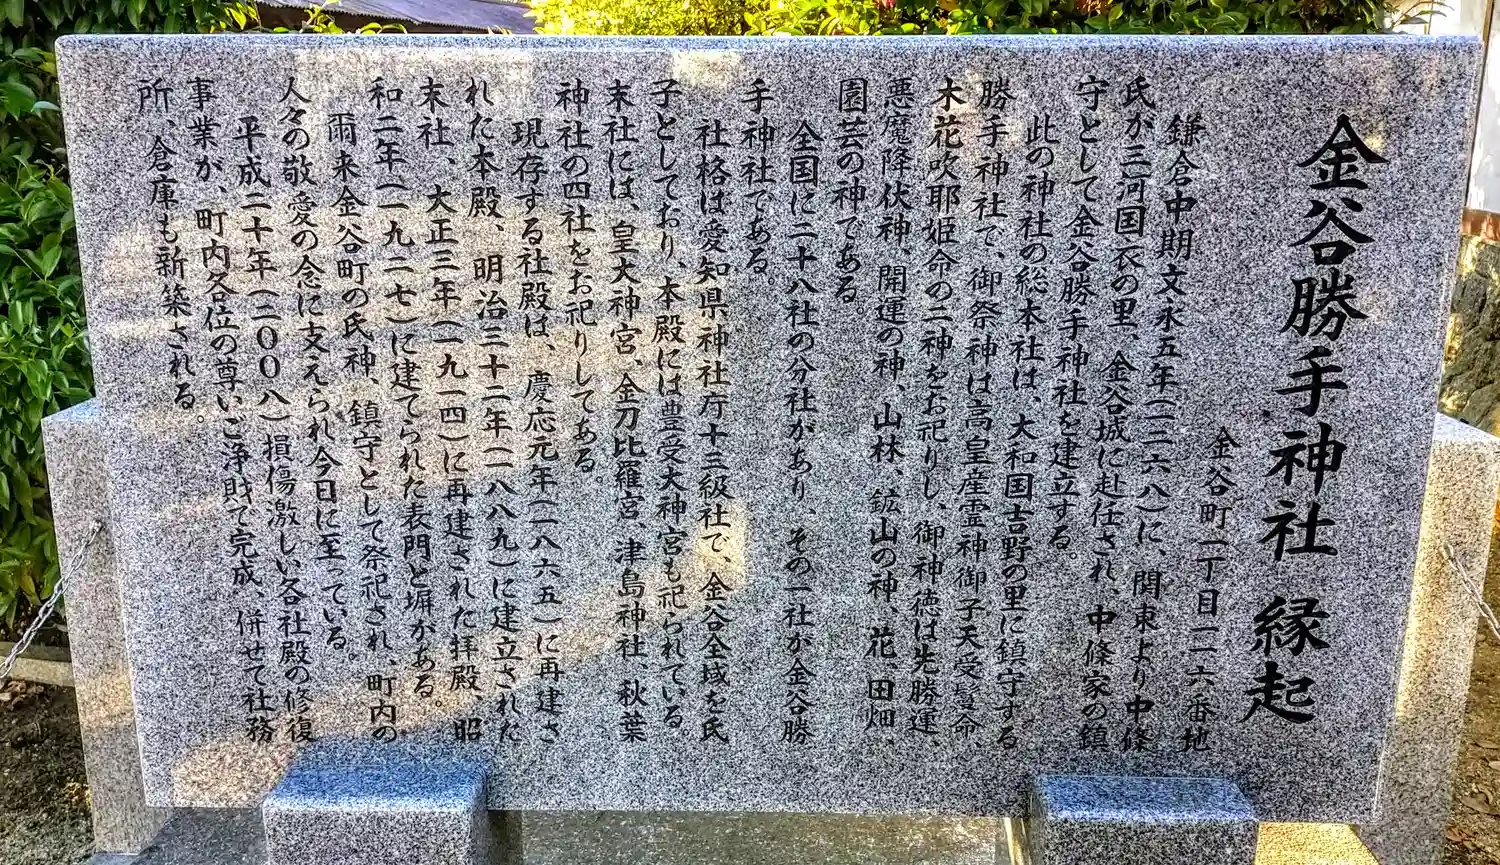 金谷勝手神社 縁起
金谷町一丁目一一六番地
鎌倉中期文永五年(一二六八)に、関東より中條
氏が三河国衣の里、金谷城に赴任され、中條家の鎮
守として金谷勝手神社を建立する。
此の神社の総本社は、大和国吉野の里に鎮守する
勝手神社で、御祭神は高皇産霊神御子天受鬘命、
木花吹耶姫命の二神をお祀りし、御神徳は先勝運、
悪魔降伏神、開運の神、山林、鉱山の神、花、田畑、
園芸の神である。
全国に二十八社の分社があり、その一社が金谷勝
手神社である。
社格は愛知県神社庁十三級社で、金谷全域を氏
子としており、本殿には豊受大神宮も祀られている
末社には、皇大神宮、金刀比羅宮、津島神社、秋葉
神社の四社をお祀りしてある。
現存する社殿は、慶応元年(一八六五)に再建さ
れた本殿、明治三十二年(一八八九)に建立された
末社、大正三年(一九一四)に再建された拝殿、昭
和二年(一九二七)に建てられた表門と塀がある。
爾来金谷町の氏神、鎮守として祭祀され、町内の
人々の敬愛の念に支えられ今日に至っている。
平成二十年(二〇〇八)損傷激しい各社殿の修復
事業が、町内各位の尊いご浄財で完成、併せて社務
所、倉庫も新築される。